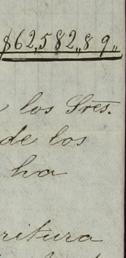 $62,582,,89,,
los Sres.
de los
ha
ritura